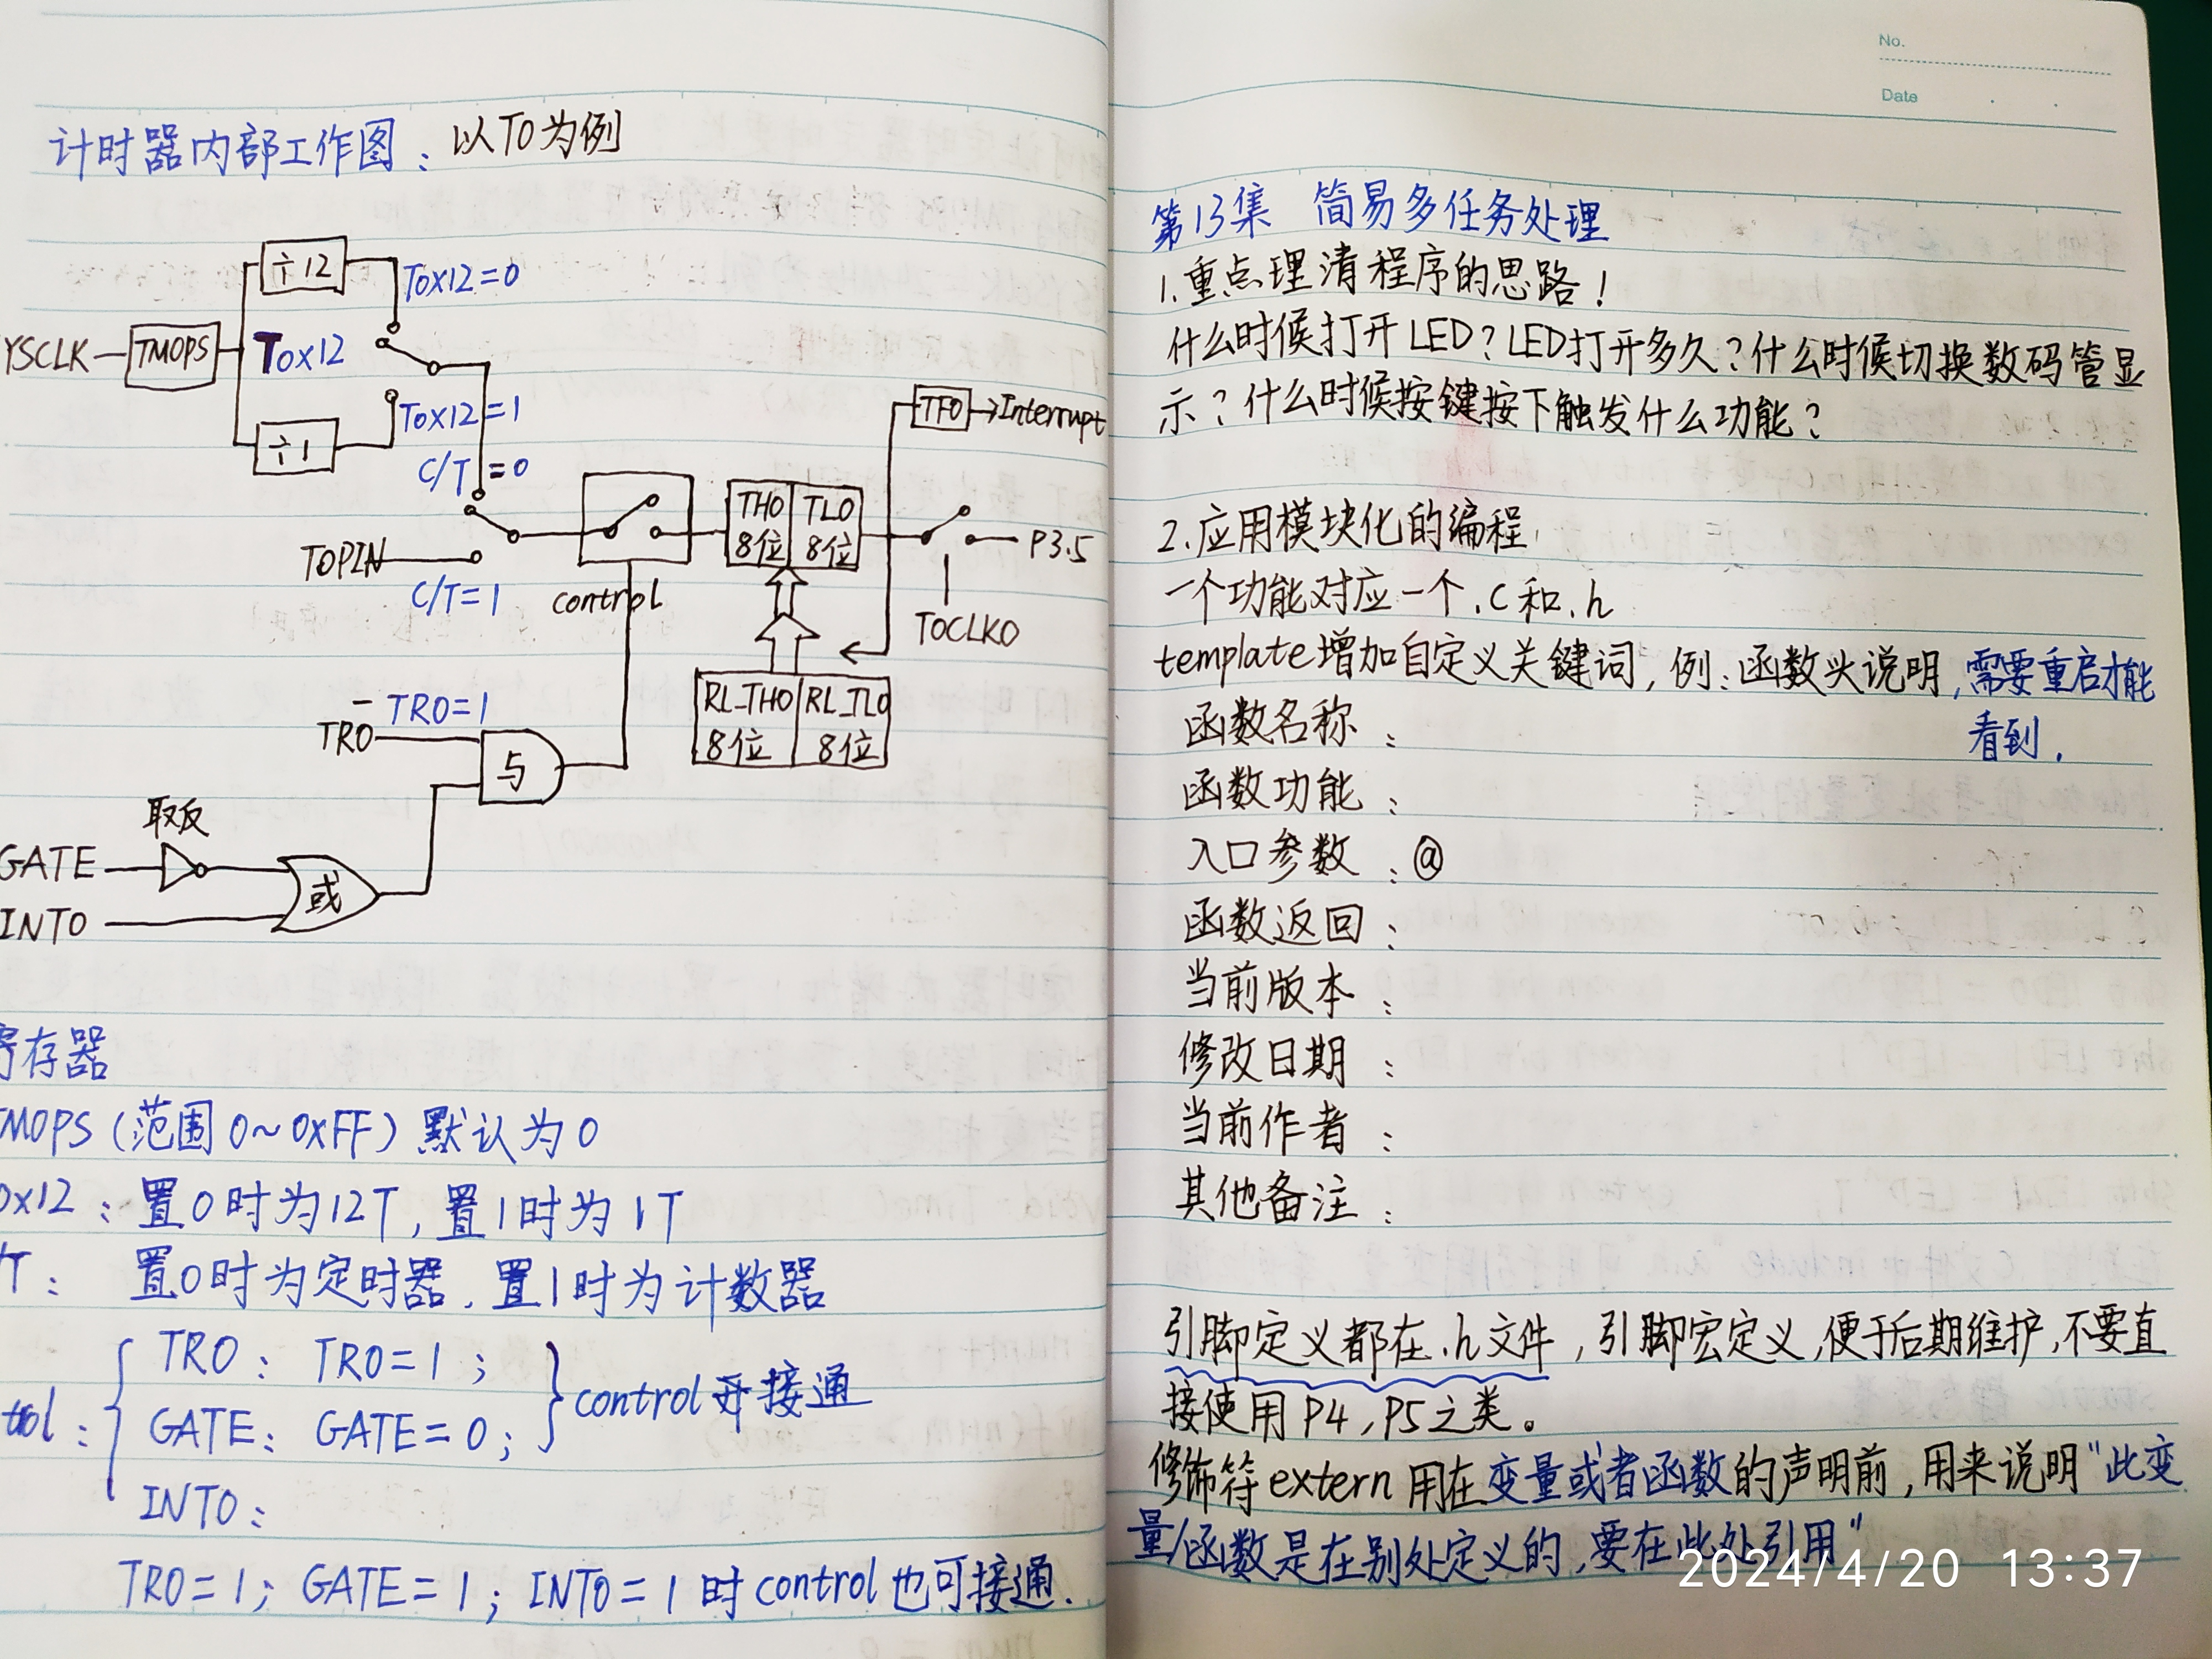 计时器内部工作图: 以T0为例
÷12
T0x12=0
YSCLK
TM0PS
T0x12
T0x12=1
÷1
C/T=0
TF0
Interrupt
TH0 8位
TL0 8位
T0PIN
C/T=1
control
P3.5
T0CLKO
RL_TH0 8位
RL_TL0 8位
TR0=1
TR0
与
取反
GATE
或
INT0
寄存器
M0PS (范围0~0xFF) 默认为0
0x12: 置0时为12T, 置1时为1T
/T: 置0时为定时器, 置1时为计数器
TR0: TR0=1;
trol:
GATE: GATE=0;
control开接通
INT0:
TR0=1; GATE=1; INT0=1时control也可接通.
No.
Date
第13集 简易多任务处理
1.重点理清程序的思路!
什么时候打开LED?LED打开多久?什么时候切换数码管显
示?什么时候按键按下触发什么功能?
2.应用模块化的编程
一个功能对应一个.c和.h
template增加自定义关键词,例:函数头说明,需要重启才能
看到.
函数名称:
函数功能:
入口参数:@
函数返回:
当前版本:
修改日期:
当前作者:
其他备注:
引脚定义都在.h文件,引脚宏定义,便于后期维护,不要直
接使用P4,P5之类。
修饰符extern用在变量或者函数的声明前,用来说明"此变
量/函数是在别处定义的,要在此处引用"
2024/4/20 13:37